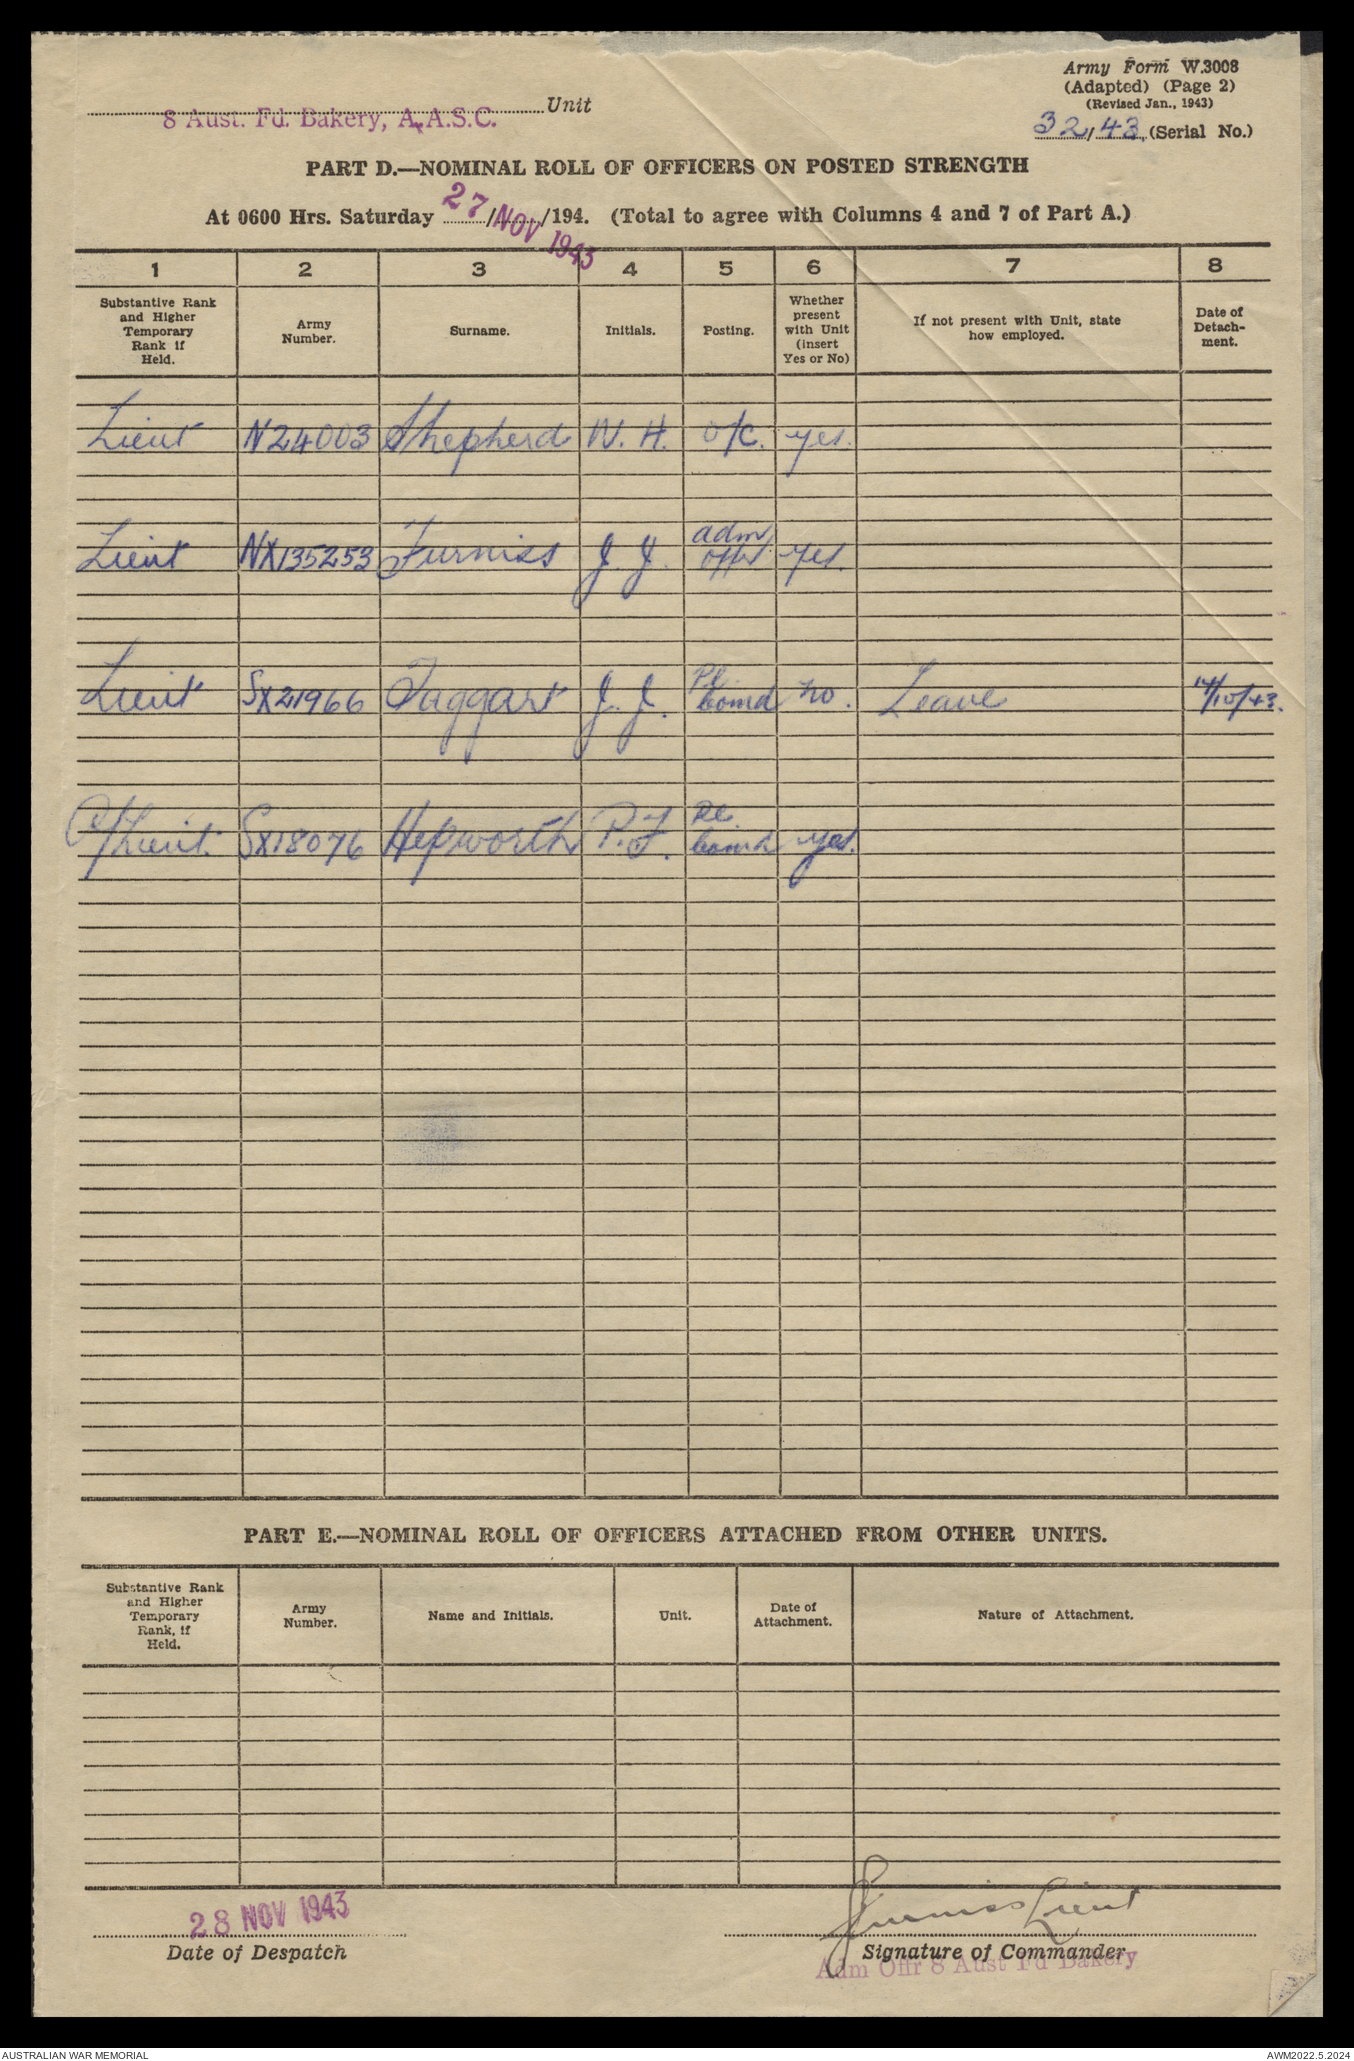 Army Form W.3008
(Adapted) (Page 2)
(Revised Jan., 1943)
8 Aust. Fd. Bakery, A.A.S.C. Unit
32/43 (Serial No.)
PART D.—NOMINAL ROLL OF OFFICERS ON POSTED STRENGTH
At 0600 Hrs. Saturday 27/NOV 1943/194. (Total to agree with Columns 4 and 7 of Part A.)
1 2 3 4 5 6 7 8
Substantive Rank and Higher Temporary Rank if Held. Army Number. Surname. Initials. Posting. Whether present with Unit (insert Yes or No) If not present with Unit, state how employed. Date of Detach-ment.
Lieut N24003 Shepherd W. H. O/C. yes.
Lieut NX135253 Furniss J. J. adm offr yes.
Lieut SX21966 Taggart J. J. Pl. Comd no. Leave 14/10/43.
Lieut. SX18076 Hepworth P. F. Pl. Comd yes.
PART E.—NOMINAL ROLL OF OFFICERS ATTACHED FROM OTHER UNITS.
Substantive Rank and Higher Temporary Rank, if Held. Army Number. Name and Initials. Unit. Date of Attachment. Nature of Attachment.
28 NOV 1943
Date of Despatch
JJFurniss Lieut
Signature of Commander
Adm Offr 8 Aust Fd Bakery
AUSTRALIAN WAR MEMORIAL
AWM2022.5.2024